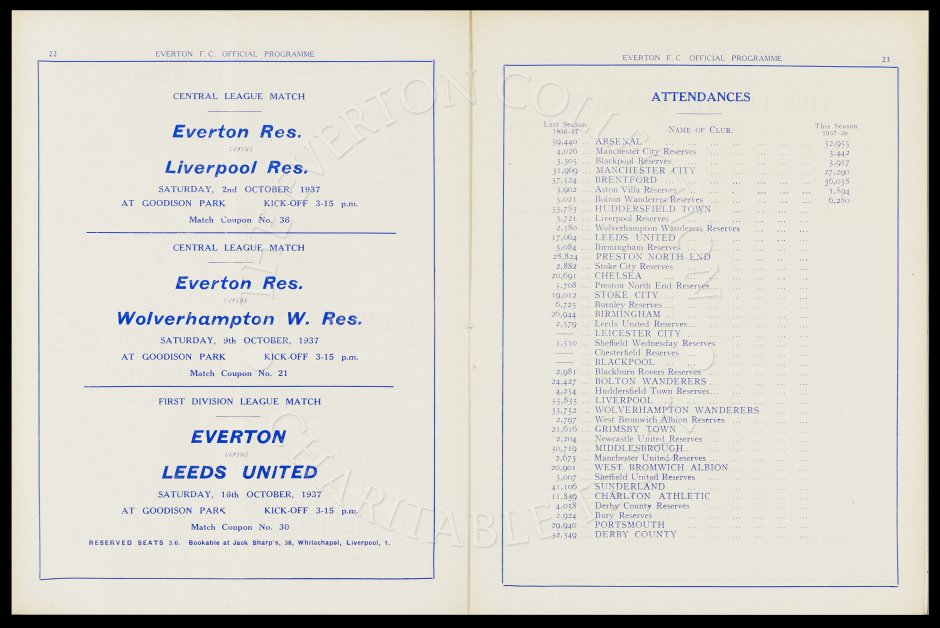 22
EVERTON F.C. OFFICIAL PROGRAMME
CENTRAL LEAGUE MATCH
Everton Res.
versus
Liverpool Res.
SATURDAY, 2nd OCTOBER, 1937
AT GOODISON PARK KICK-OFF 3-15 p.m.
Match Coupon No. 36
CENTRAL LEAGUE MATCH
Everton Res.
versus
Wolverhampton W. Res.
SATURDAY, 9th OCTOBER, 1937
AT GOODISON PARK KICK-OFF 3-15 p.m.
Match Coupon No. 21
FIRST DIVISION LEAGUE MATCH
EVERTON
versus
LEEDS UNITED
SATURDAY, 16th OCTOBER, 1937
AT GOODISON PARK KICK-OFF 3-15 p.m.
Match Coupon No. 30
RESERVED SEATS 3/6. Bookable at Jack Sharp's, 38, Whitechapel, Liverpool, 1.
EVERTON F.C. OFFICIAL PROGRAMME
23
ATTENDANCES
Last Season 1936-37 NAME OF CLUB. This Season 1937-38
59,440 ... ARSENAL ... 52,955
4,026 ... Manchester City Reserves ... 3,442
3,305 ... Blackpool Reserves ... 3,917
31,969 ... MANCHESTER CITY ... 27,290
37,524 ... BRENTFORD ... 36,038
3,902 ... Aston Villa Reserves ... 1,894
3,021 ... Bolton Wanderers Reserves ... 6,280
33,783 ... HUDDERSFIELD TOWN ...
3,721 ... Liverpool Reserves ...
2,580 ... Wolverhampton Wanderers Reserves ...
17,064 ... LEEDS UNITED ...
3,084 ... Birmingham Reserves ...
28,824 ... PRESTON NORTH END ...
2,882 ... Stoke City Reserves ...
20,691 ... CHELSEA ...
5,708 ... Preston North End Reserves ...
19,012 ... STOKE CITY ...
6,725 ... Burnley Reserves ...
26,944 ... BIRMINGHAM ...
2,579 ... Leeds United Reserves ...
—— ... LEICESTER CITY ...
1,510 ... Sheffield Wednesday Reserves ...
—— ... Chesterfield Reserves ...
—— ... BLACKPOOL ...
2,981 ... Blackburn Rovers Reserves ...
24,427 ... BOLTON WANDERERS ...
4,254 ... Huddersfield Town Reserves ...
55,835 ... LIVERPOOL ...
33,752 ... WOLVERHAMPTON WANDERERS ...
2,797 ... West Bromwich Albion Reserves ...
21,616 ... GRIMSBY TOWN ...
2,204 ... Newcastle United Reserves ...
30,719 ... MIDDLESBROUGH ...
2,673 ... Manchester United Reserves ...
20,901 ... WEST BROMWICH ALBION ...
3,007 ... Sheffield United Reserves ...
41,106 ... SUNDERLAND ...
11,839 ... CHARLTON ATHLETIC ...
4,058 ... Derby County Reserves ...
2,924 ... Bury Reserves ...
29,940 ... PORTSMOUTH ...
32,349 ... DERBY COUNTY ...